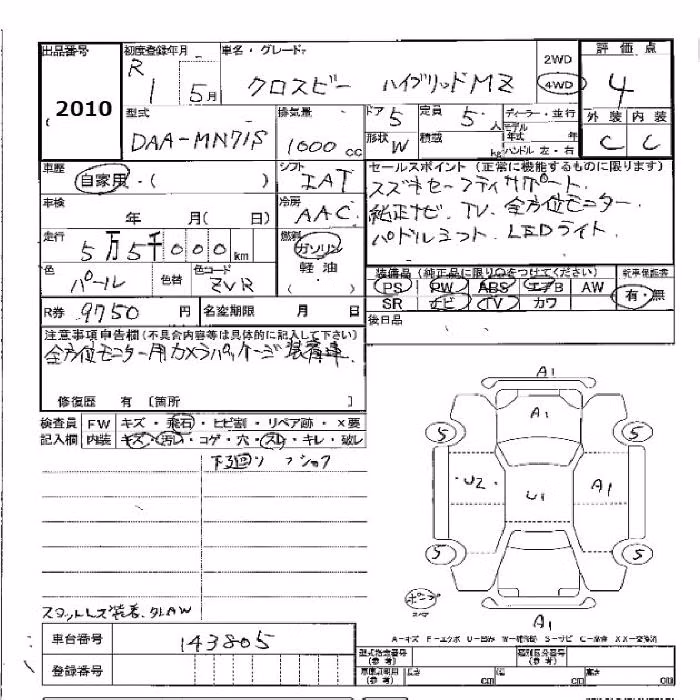 出品番号 初度登録年月 車名・グレード 2WD 評価点
R1 5月 クロスビー ハイブリッドMZ 4WD 4
2010
型式 排気量 ドア 5 定員 5人 ディーラー・並行 外装 内装
DAA-MN71S 1000cc 形状 W 積載 kg モデル年式 年 C C
ハンドル 左・右
車歴 シフト セールスポイント (正常に機能するものに限ります)
自家用・( ) IAT スズキセーフティサポート.
車検 冷房 純正ナビ. TV. 全方位モニター.
年 月( 日) AAC パドルシフト. LEDライト.
走行 燃料
5万5千000km ガソリン 装備品 (純正品に限り○をつけてください) 新車保証書
色 色替 色コード 軽油 PS PW ABS エアB AW 有・無
パール ZVR ( ) SR ナビ TV カワ
R券 9750円 名変期限 月 日 後日品
注意事項申告欄 (不具合内容等は具体的に記入して下さい)
全方位モニター用カメラパッケージ装着車.
修復歴 有 [箇所 ]
検査員 FW キズ・飛石・ヒビ割・リペア跡・X要
記入欄 内装 キズ・汚レ・コゲ・穴・スレ・キレ・破レ
下回り
A1
A1
5 5
U2 U1 A1
5 5
A1
A-キズ F-エクボ U-凹み W-補修跡 S-サビ C-腐食 XX-交換済
車台番号 143805
型式指定番号 (参考) 類別区分番号 (参考)
登録番号 長さ cm 幅 cm 高さ cm